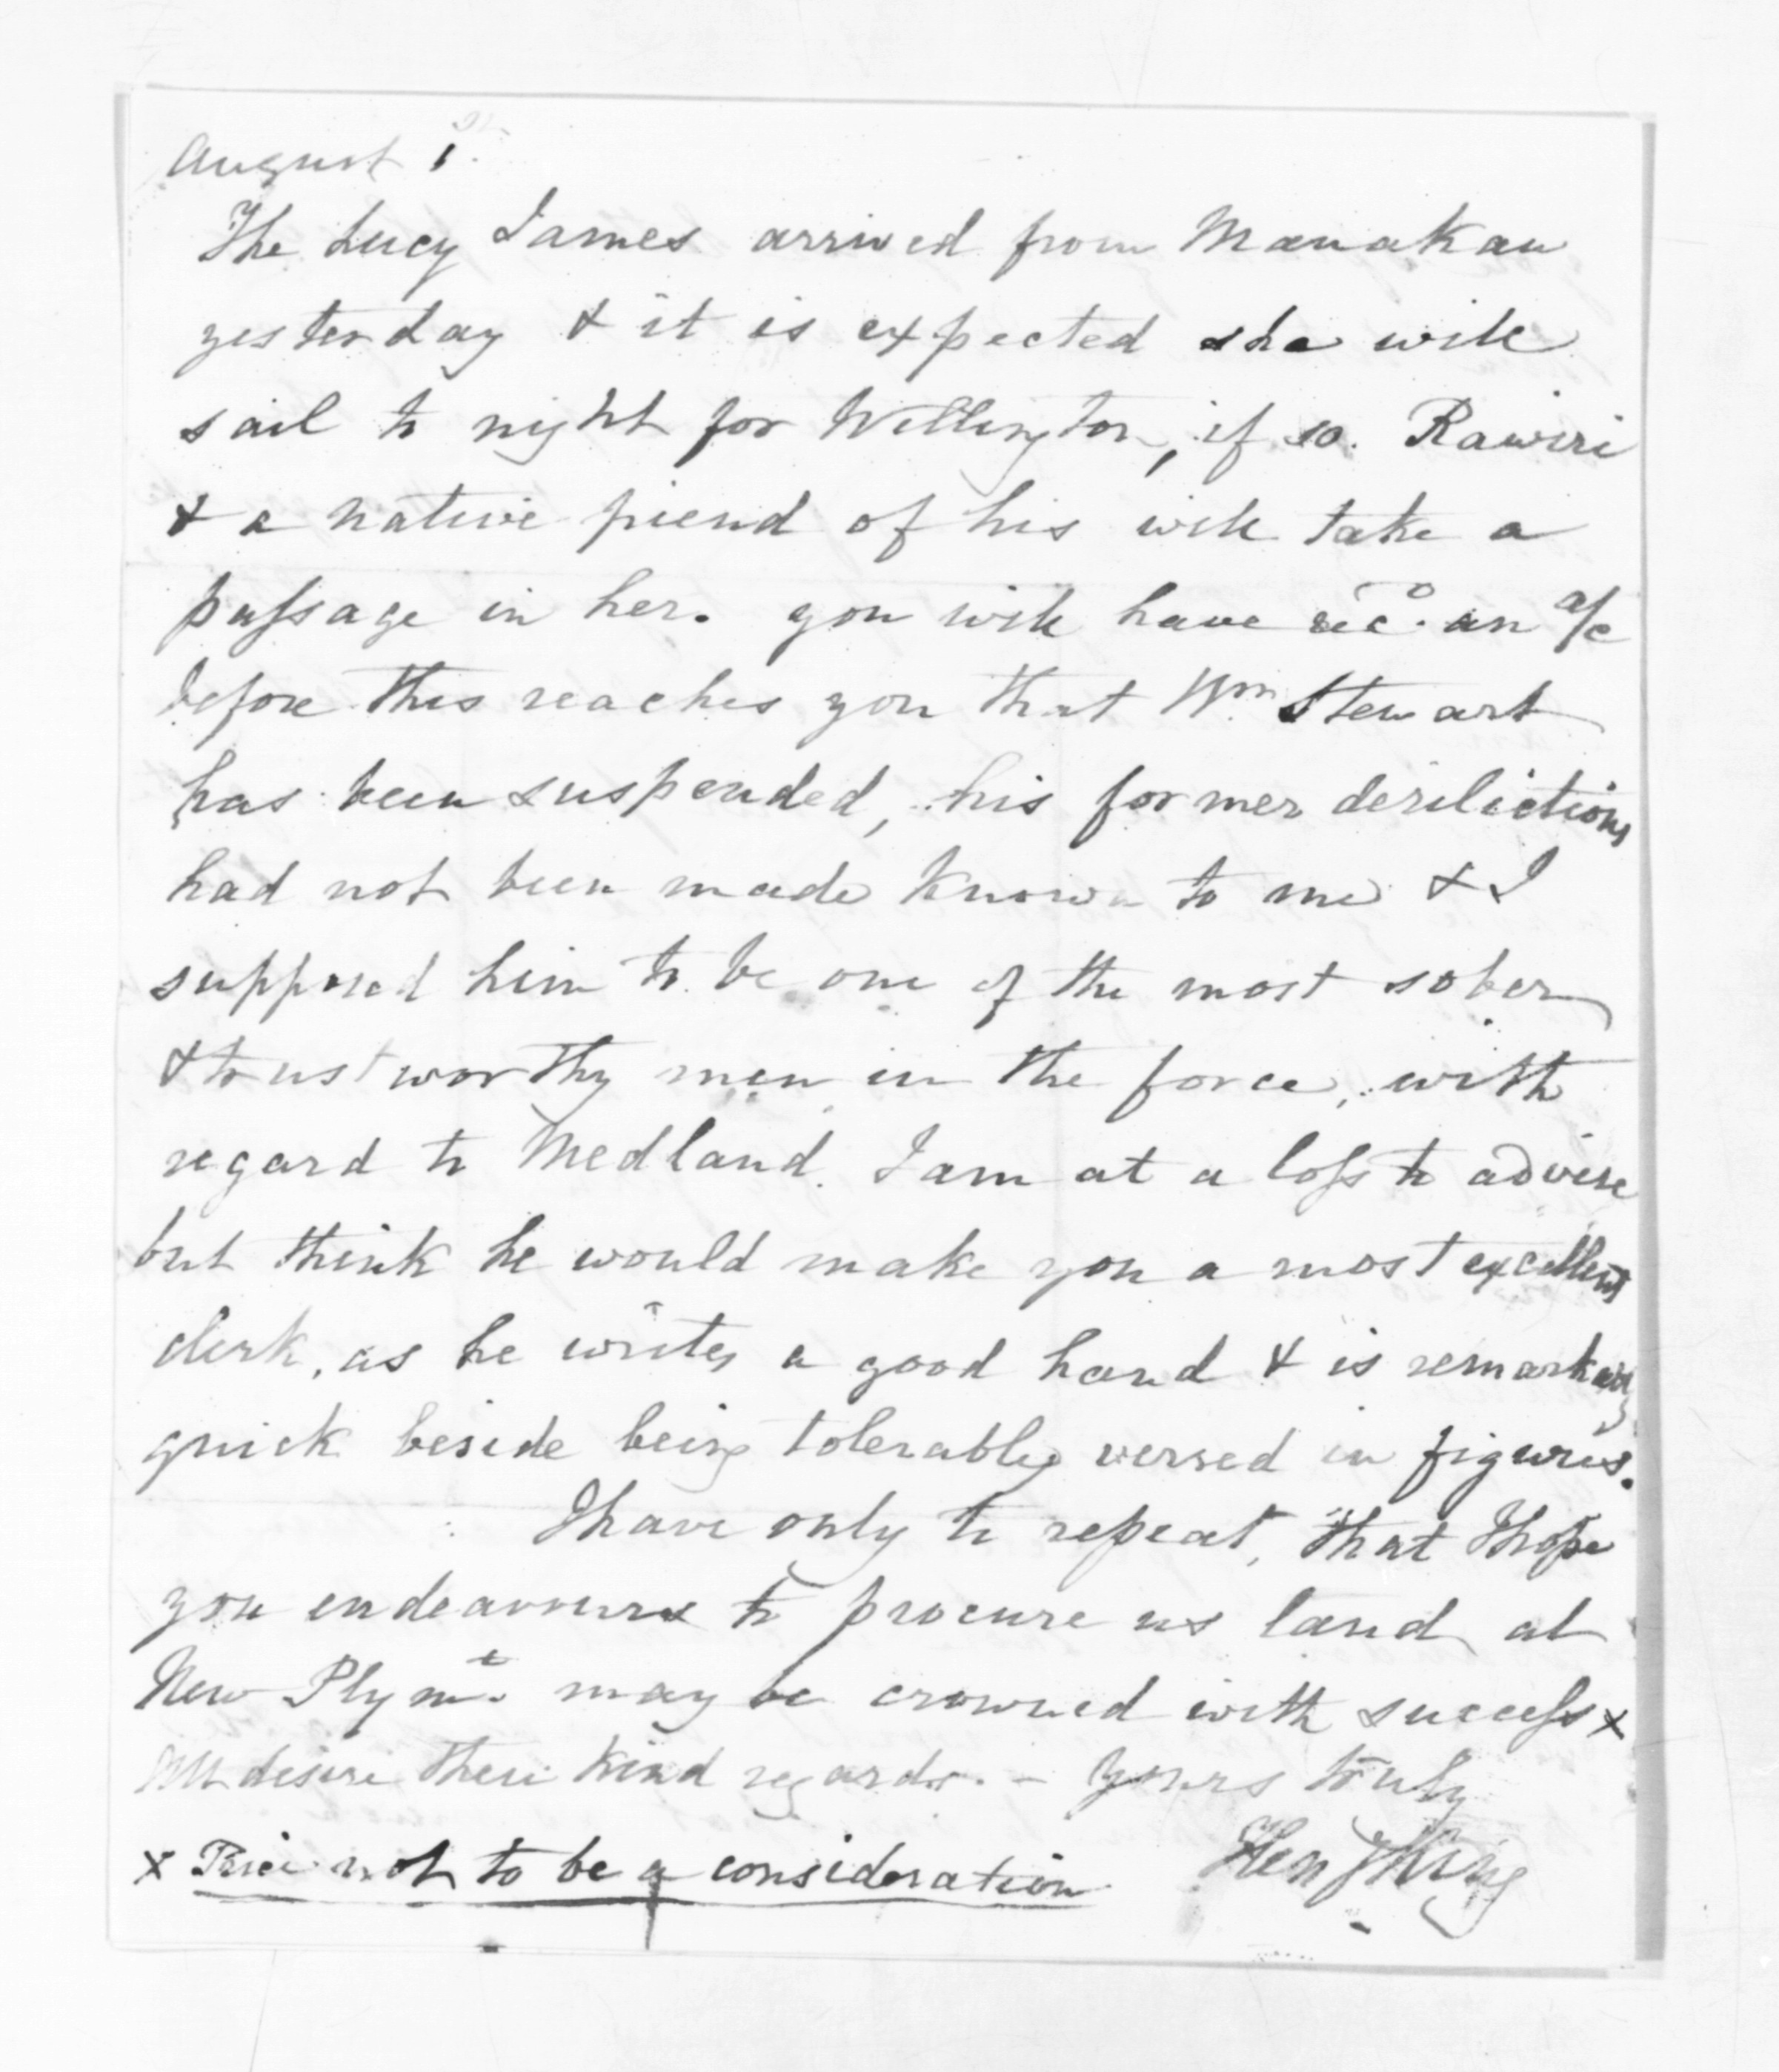 August 1st
The Lucy James arrived from Manakau
yesterday & it is expected she will
sail to night for Wellington, if so. Rawiri
& a native friend of his will take a
passage in her. you will have recd. an a/c
before this reaches you that Wm Stewart
has been suspended, his former derilictions
had not been made known to me & I
supposed him to be one of the most sober
& trustworthy men in the force, with
regard to Medland. I am at a loss to advise
but think he would make you a most excellent
clerk, as he writes a good hand & is remarkably
quick beside being tolerably versed in figures.
I have only to repeat, that I hope
you endeavours to procure us land at
New Plymt. may be crowned with success x
All desire their kind regards. - Yours truly
x Price not to be a consideration
Hen King